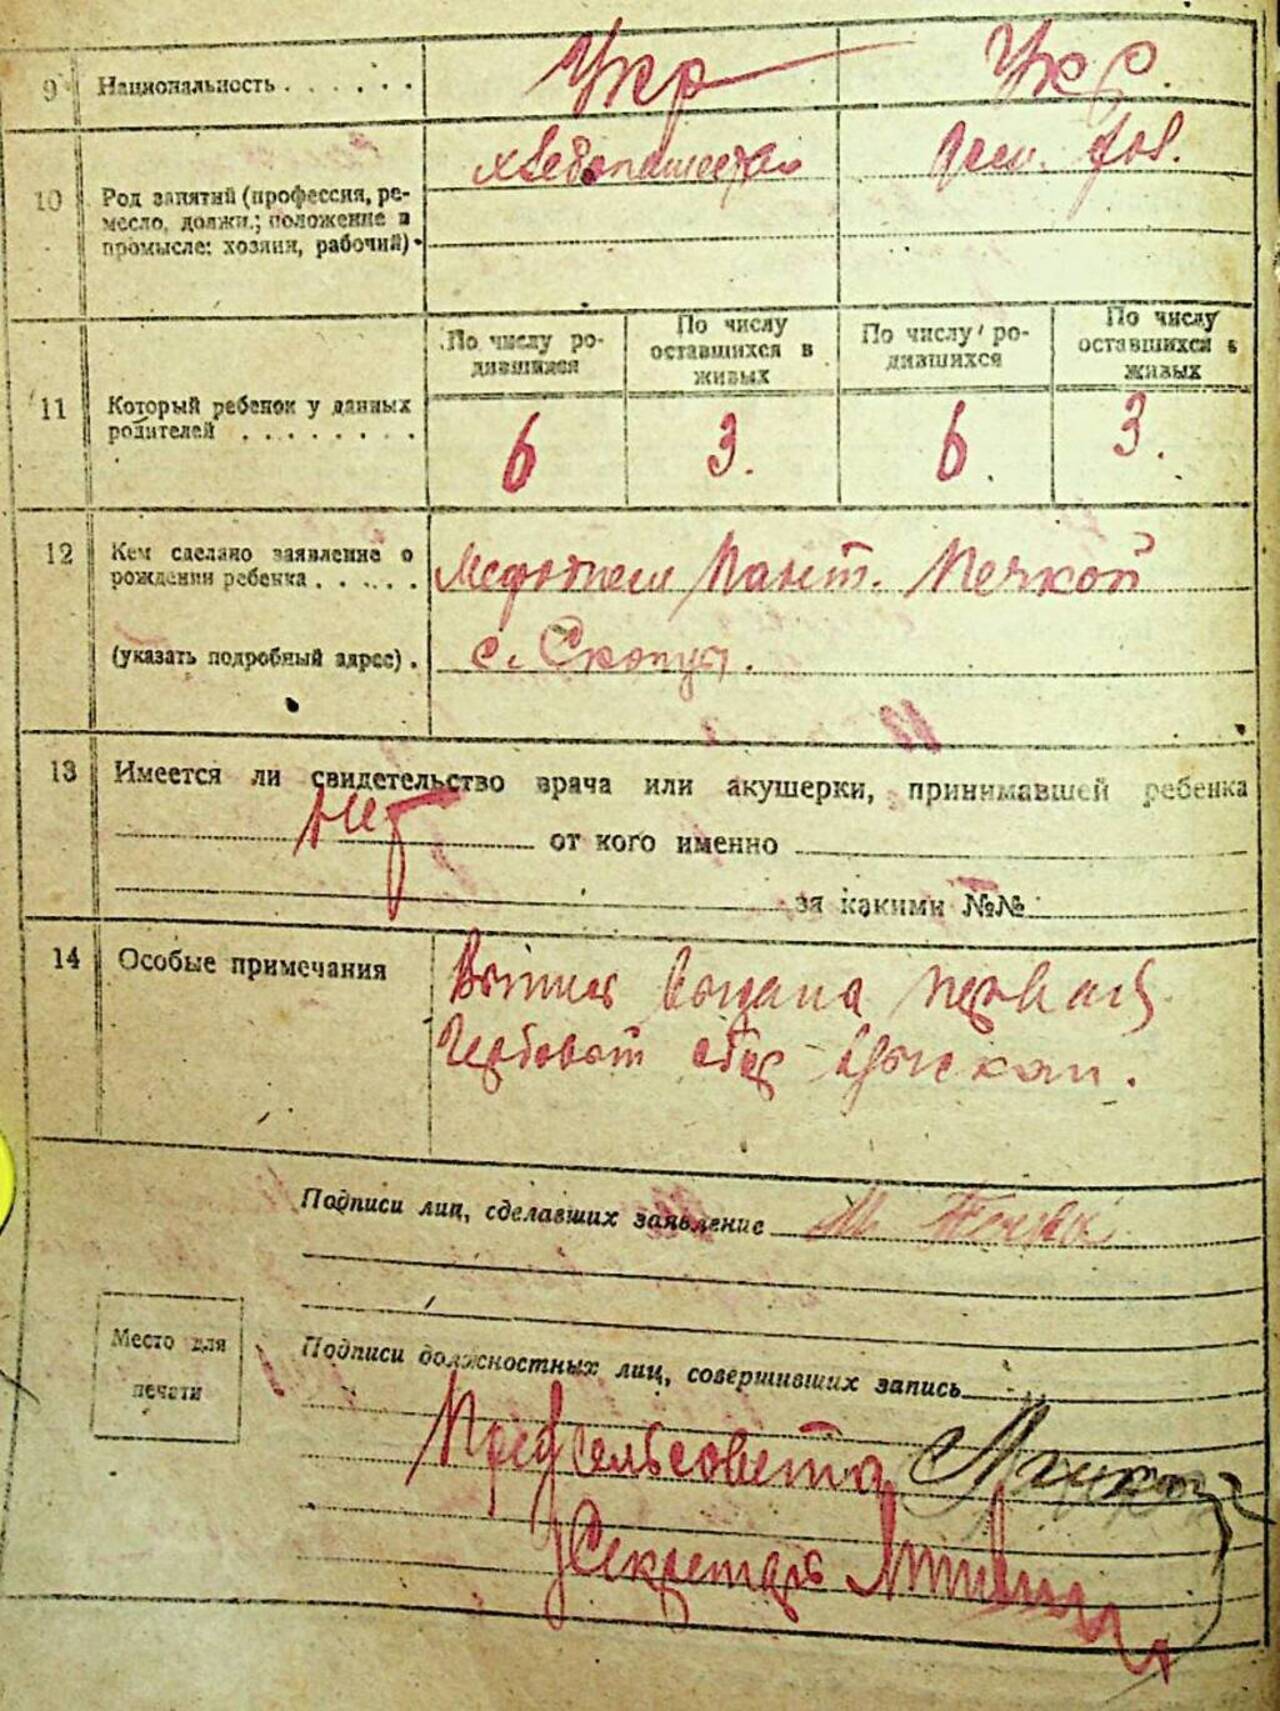 9 Национальность . . . . . . Укр Укр.
10 Род занятий (профессия, ре-
месло, должн.; положение в
промысле: хозяин, рабочий) ·
хлебопашество Дом. хоз.
11 Который ребенок у данных
родителей . . . . . . . .
По числу ро-
дившихся
По числу
оставшихся в
живых
По числу ро-
дившихся
По числу
оставшихся в
живых
6 3. 6. 3.
12 Кем сделано заявление о
рождении ребенка . . . . .
Мефодием Пант. Печкой
(указать подробный адрес) .
с.
13 Имеется ли свидетельство врача или акушерки, принимавшей ребенка
нет от кого именно
за какими №№
14 Особые примечания
Выпись выдана первая
Гербовый сбор взыскан.
Подписи лиц, сделавших заявление М Печка
Место для
печати
Подписи должностных лиц, совершивших запись
Предсельсовета
Секретарь